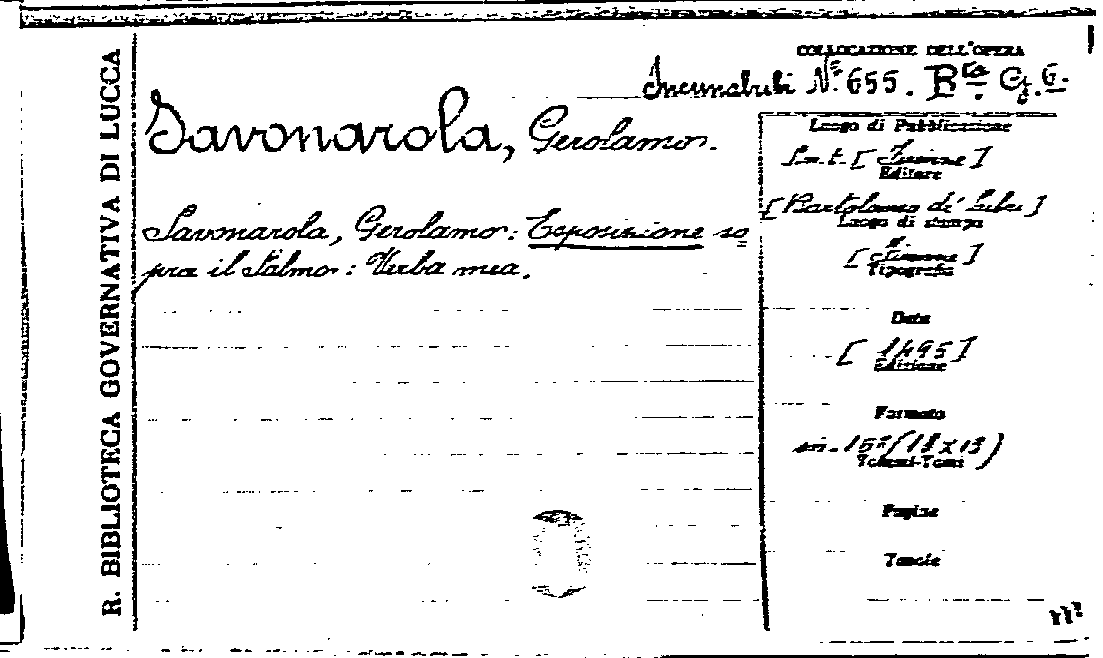 R. BIBLIOTECA GOVERNATIVA DI LUCCA
COLLOCAZIONE DELL'OPERA
Incunabuli Nº 655. Bta G. G.
Savonarola, Gerolamo.
Savonarola, Gerolamo: Esposizione so
pra il Salmo: Verba mea.
Luogo di Pubblicazione
s. n. t. [Firenze]
Editore
[Bartolomeo di Libri]
Luogo di stampa
[Firenze]
Tipografia
Data
[1495]
Edizione
Formato
in-15º (18x13)
Volumi-Tomi
Pagine
Tavole